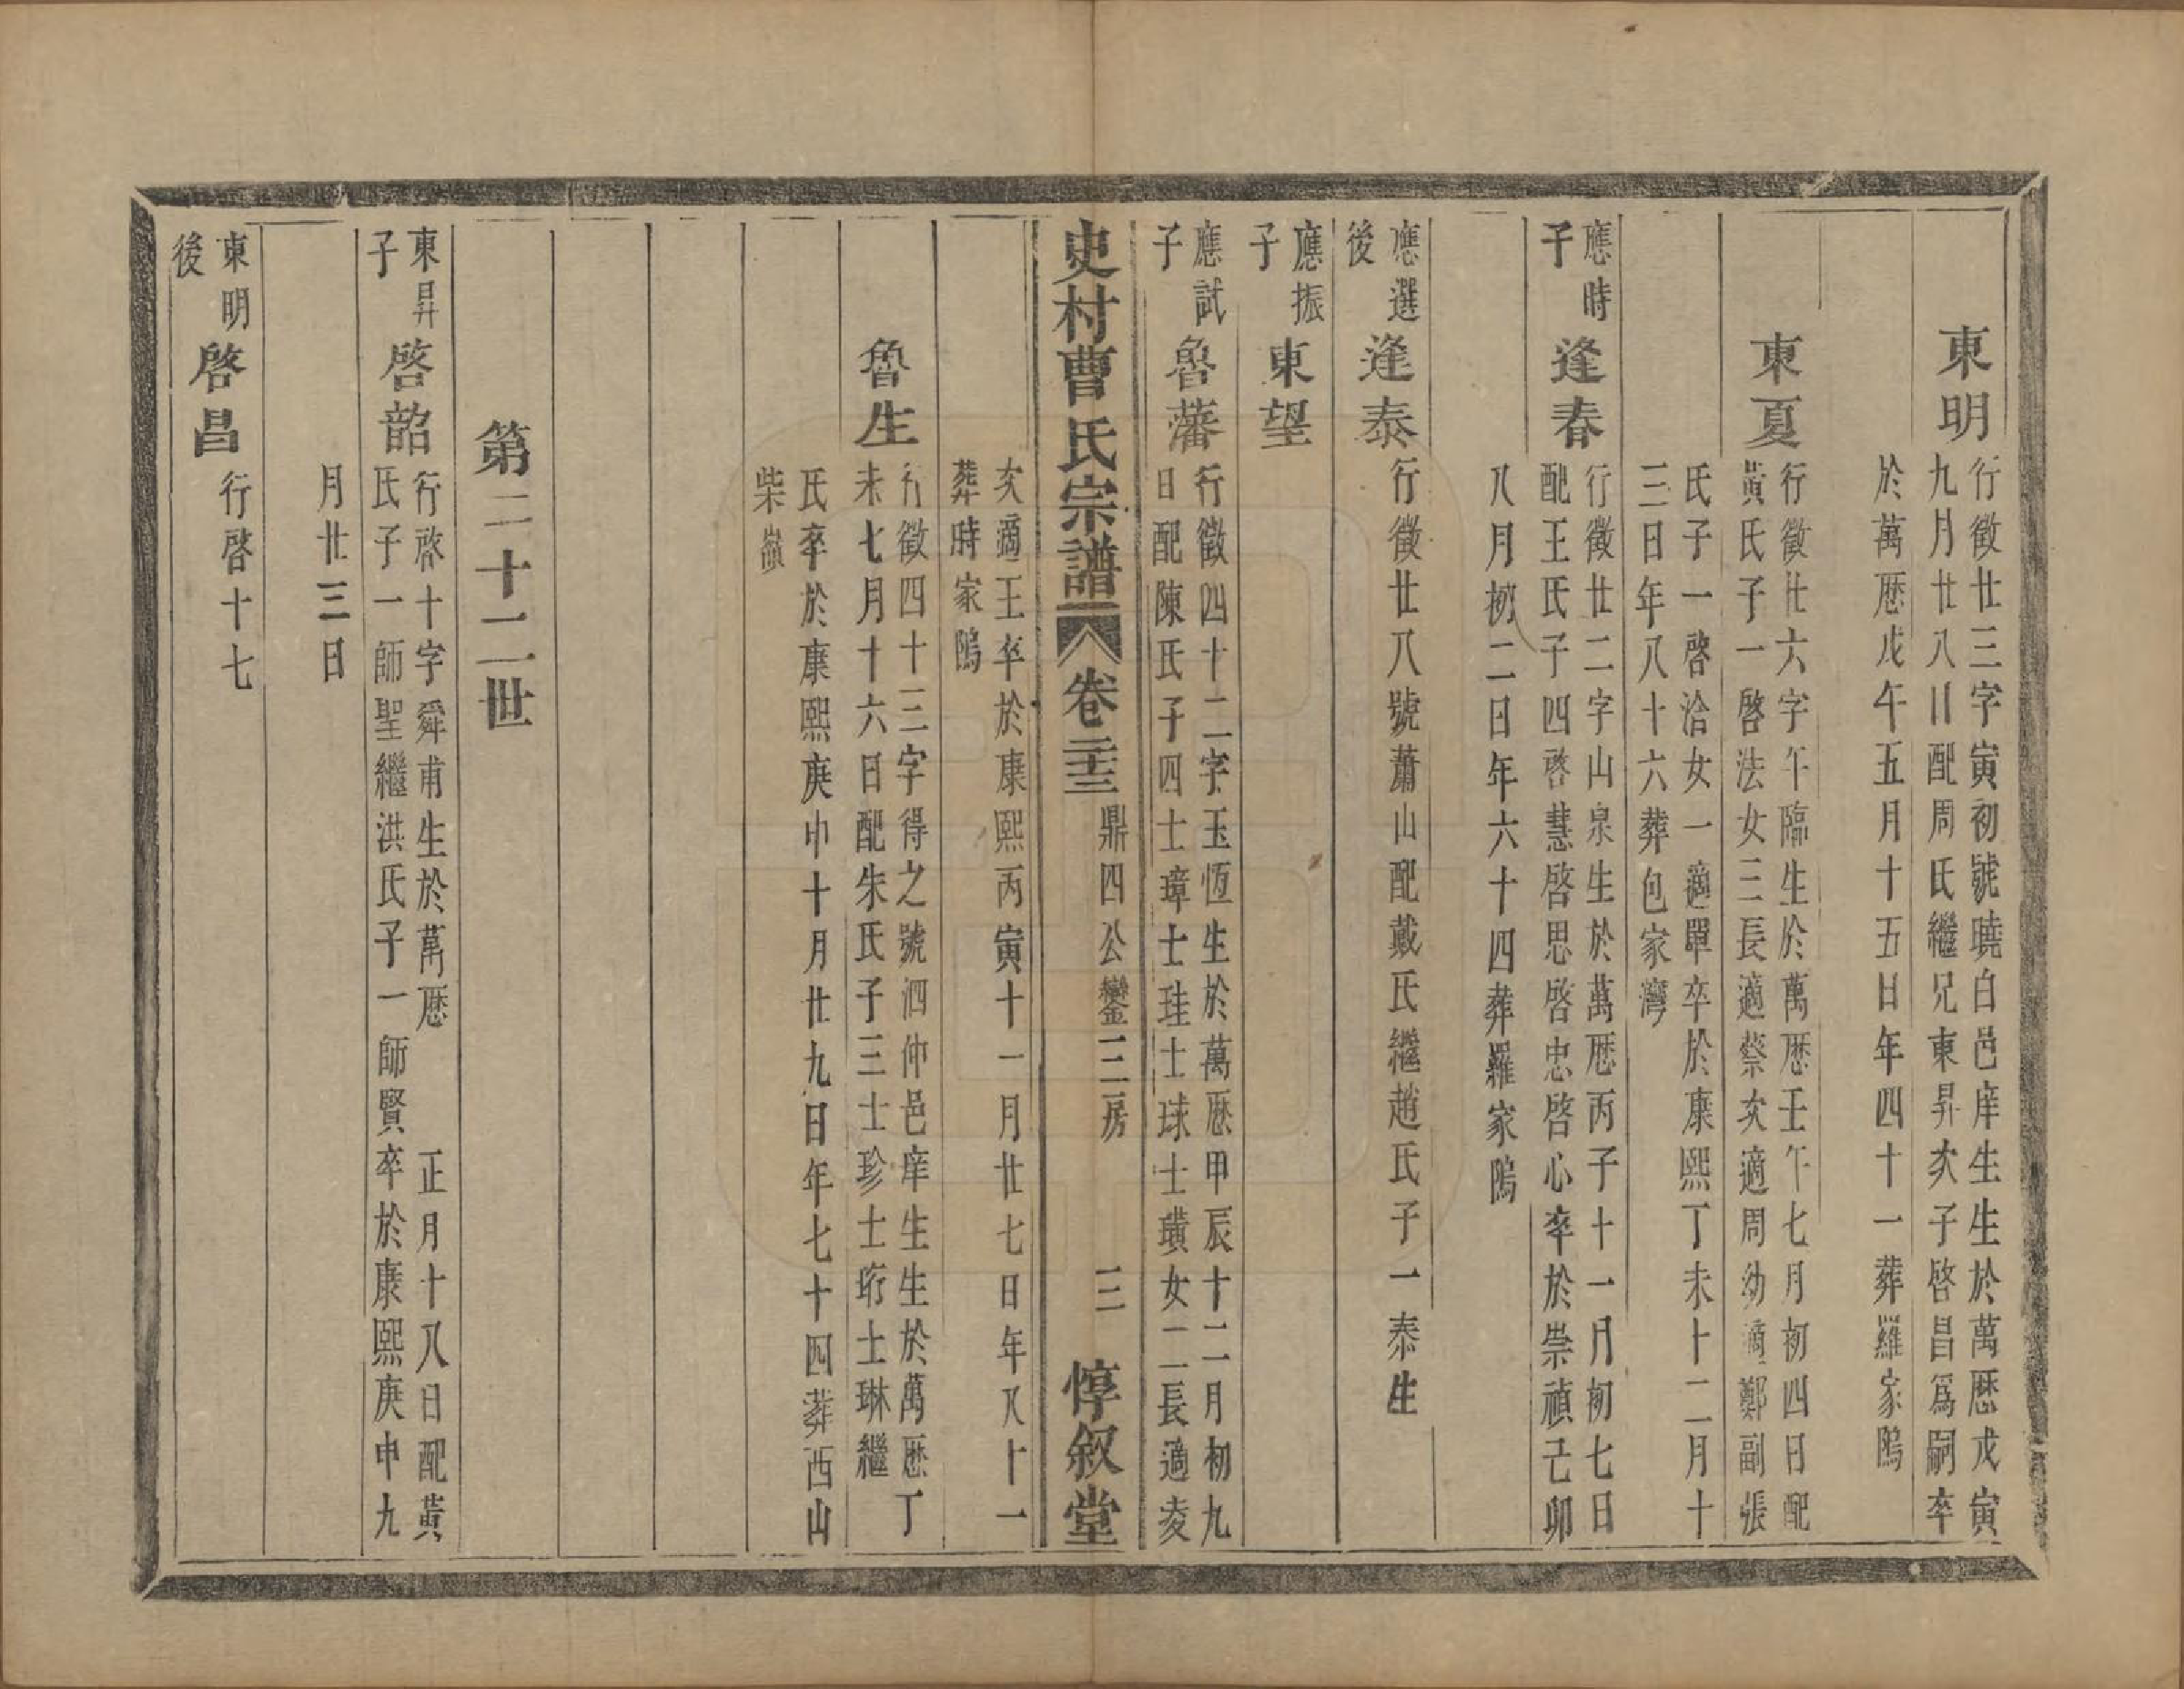 東明
行徵廿三字寅初號曉白邑庠生生於萬厯戊寅
九月廿八日配周氏繼兄東昇次子啓昌爲嗣卒
於萬厯戊午五月十五日年四十一葬羅家隖
東夏
行徵廿六字午臨生於萬厯壬午七月初四日配
黃氏子一啓法女三長適蔡次適周幼適鄭副張
氏子一啓洽女一適單卒於康熙丁未十二月十
三日年八十六葬包家灣
應時
子
逢春
行徵廿二字山泉生於萬厯丙子十一月初七日
配王氏子四啓慧啓思啓忠啓心卒於崇禎己卯
八月初二日年六十四葬羅家隖
應選
後
逢泰
行徵廿八號蕭山配戴氏繼趙氏子一泰生
應振
子
東望
應試
子
魯藩
行徵四十二字玉恆生於萬厯甲辰十二月初九
日配陳氏子四士璋士珪士球士璜女二長適凌
史村曹氏宗譜 卷二十三 鼎四公鑾三房 三 惇敘堂
次適王卒於康熙丙寅十一月廿七日年八十一
葬時家隖
魯生
行徵四十三字得之號泗仲邑庠生生於萬厯丁
未七月十六日配朱氏子三士珍士珩士琳繼
氏卒於康熙庚申十月廿九日年七十四葬西山
柴嶺
第二十二世
東昇
子
啓韶
行啓十字舜甫生於萬厯 正月十八日配黃
氏子一師聖繼洪氏子一師賢卒於康熙庚申九
月廿三日
東明
後
啓昌
行啓十七